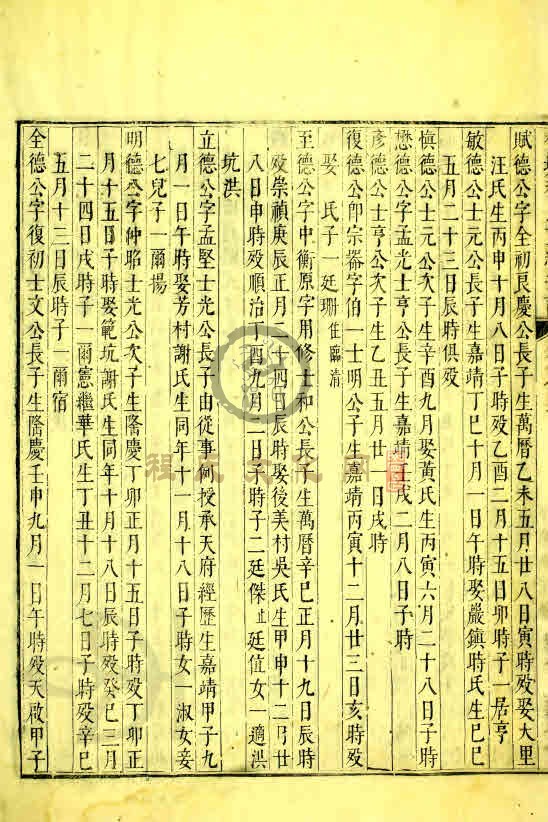 賦德公字全初良慶公長子生萬曆乙未五月廿八日寅時歿娶大里
汪氏生丙申十月八日子時歿乙酉二月十五日卯時子一居亨
敏德公士元公長子生嘉靖丁巳十月一日午時娶嚴鎮時氏生己巳
五月二十三日辰時俱歿
慎德公士元公次子生辛酉九月娶黃氏生丙寅六月二十八日子時
懋德公字孟光士亨公長子生嘉靖壬戌二月八日子時
彥德公士亨公次子生乙丑五月廿 日戌時
復德公卽宗器字伯一士明公子生嘉靖丙寅十二月廿三日亥時歿
娶 氏子一廷珊住臨清
至德公字中衡原字用修士和公長子生萬曆辛巳正月十九日辰時
歿崇禎庚辰正月二十四日辰時娶後美村吳氏生甲申十二月廿
八日申時歿順治丁酉九月二日子時子二廷傑止廷值女一適洪
坑洪
立德公字孟堅士光公長子由從事何授承天府經歷生嘉靖甲子九
月一日午時娶芳村謝氏生同年十一月十八日子時女一淑女妾
七兒子一爾揚
明德公字仲昭士光公次子生隆慶丁卯正月十五日子時歿丁卯正
月十五日子時娶範坑謝氏生同年十月十八日辰時歿癸巳三月
二十四日戌時子一爾憲繼華氏生丁丑十二月七日子時歿辛巳
五月十三日辰時子一爾宿
全德公字復初士文公長子生隆慶壬申九月一日午時歿天啟甲子